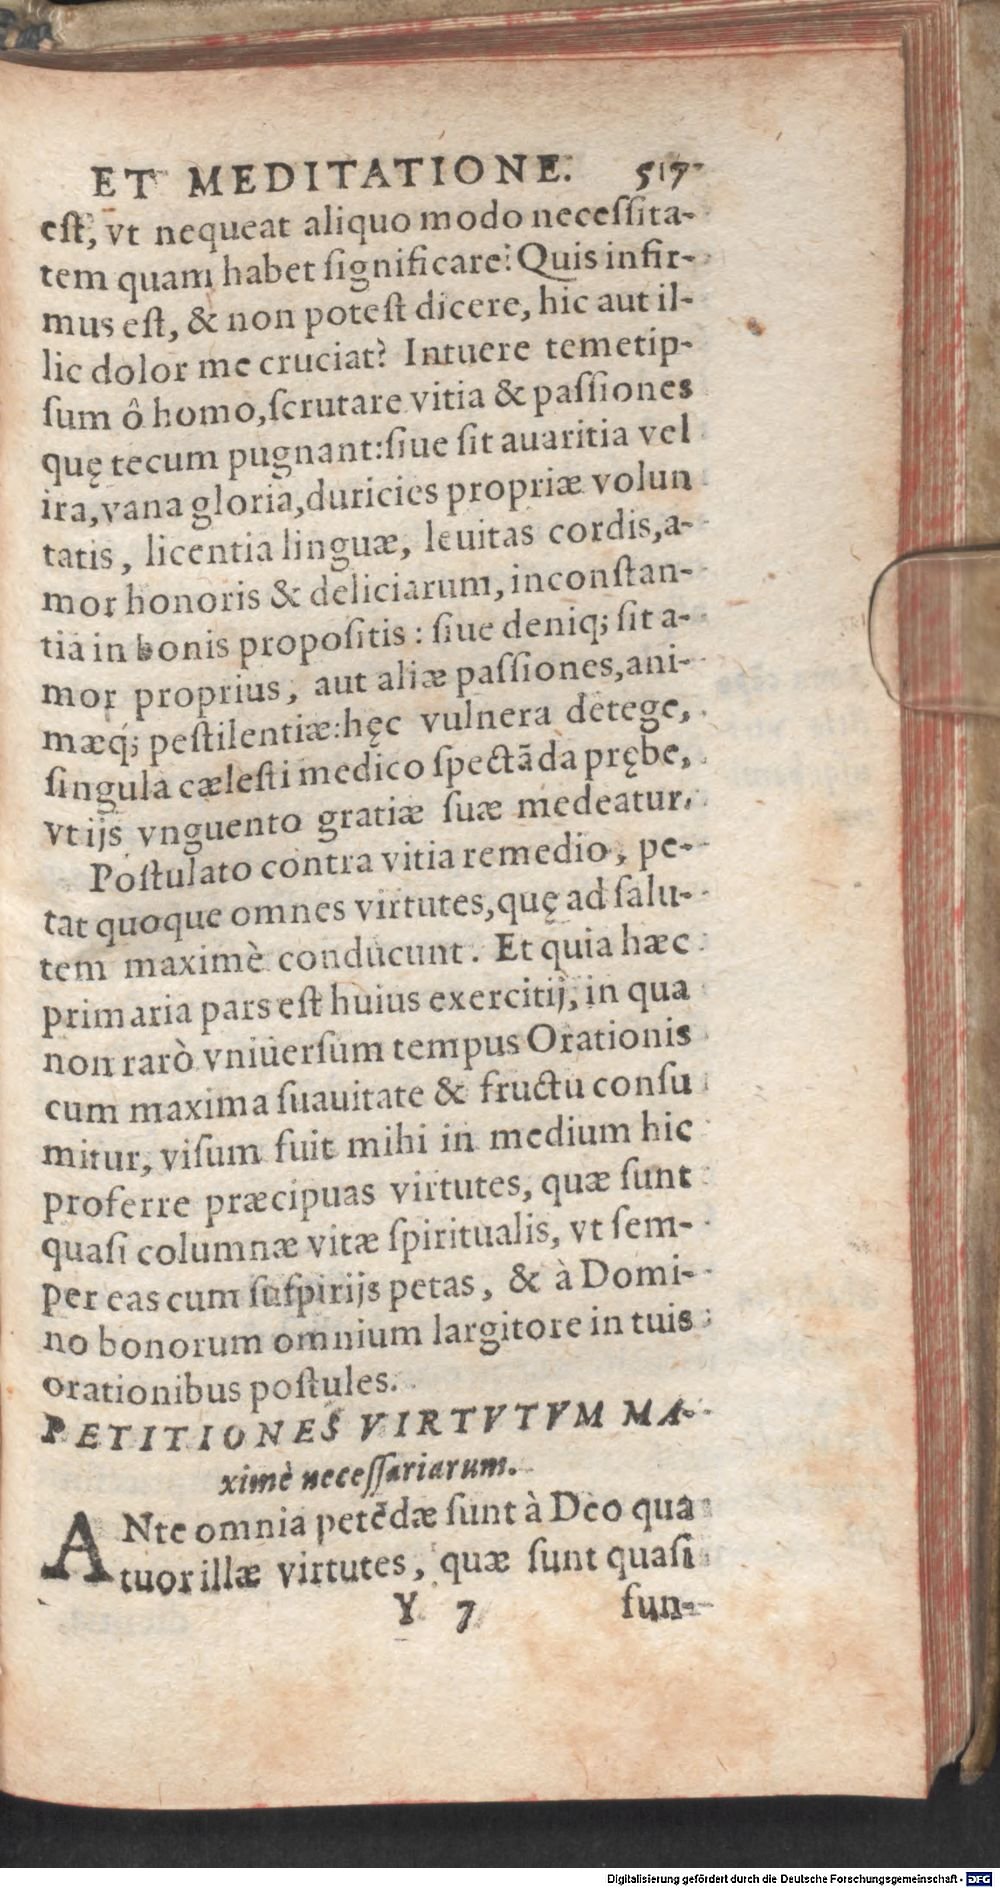 ET MEDITATIONE. 517
eſt, vt nequeat aliquo modo neceſſita-
tem quam habet ſignificare? Quis infir-
mus eſt, & non poteſt dicere, hic aut il-
lic dolor me cruciat? Intuere temetip-
ſum ô homo, ſcrutare vitia & paſſiones
quę tecum pugnant: ſiue ſit auaritia vel
ira, vana gloria, duricies propriæ volun
tatis, licentia linguæ, leuitas cordis, a-
mor honoris & deliciarum, inconſtan-
tia in bonis propoſitis: ſiue deniq; ſit a-
mor proprius, aut aliæ paſſiones, ani-
mæq́; peſtilentiæ: hęc vulnera detege,
ſingula cæleſti medico ſpectāda prębe,
vt ijs vnguento gratiæ ſuæ medeatur.
Poſtulato contra vitia remedio, pe-
tat quoque omnes virtutes, quę ad ſalu-
tem maximè conducunt. Et quia hæc
primaria pars eſt huius exercitij, in qua
non rarò vniuerſum tempus Orationis
cum maxima ſuauitate & fructu conſu
mitur, viſum fuit mihi in medium hic
proferre præcipuas virtutes, quæ ſunt
quaſi columnæ vitæ ſpiritualis, vt ſem-
per eas cum ſuſpirijs petas, & à Domi-
no bonorum omnium largitore in tuis
orationibus poſtules.
PETITIONES VIRTVTVM MA-
ximè neceſſariarum.
ANte omnia petēdæ ſunt à Deo qua
tuor illæ virtutes, quæ ſunt quaſi
Y 7 fun-
Digitalisierung gefördert durch die Deutsche Forschungsgemeinschaft - DFG